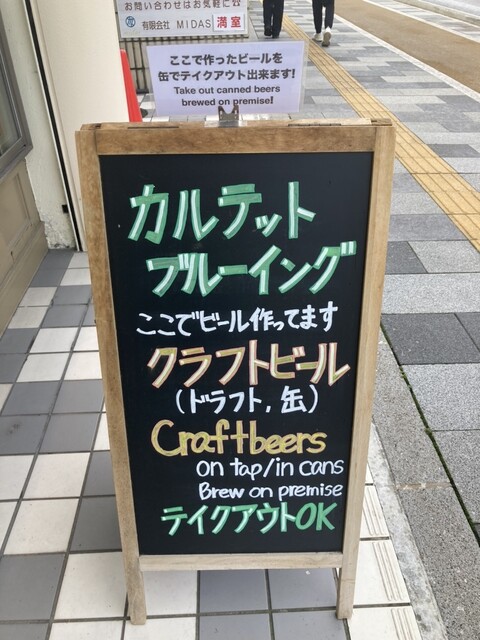 お問い合わせはお気軽に
有限会社 MIDAS 満室
ここで作ったビールを
缶でテイクアウト出来ます!
Take out canned beers
brewed on premise!
カルテット
ブルーイング
ここでビール作ってます
クラフトビール
(ドラフト, 缶)
Craftbeers
on tap/in cans
Brew on premise
テイクアウトOK